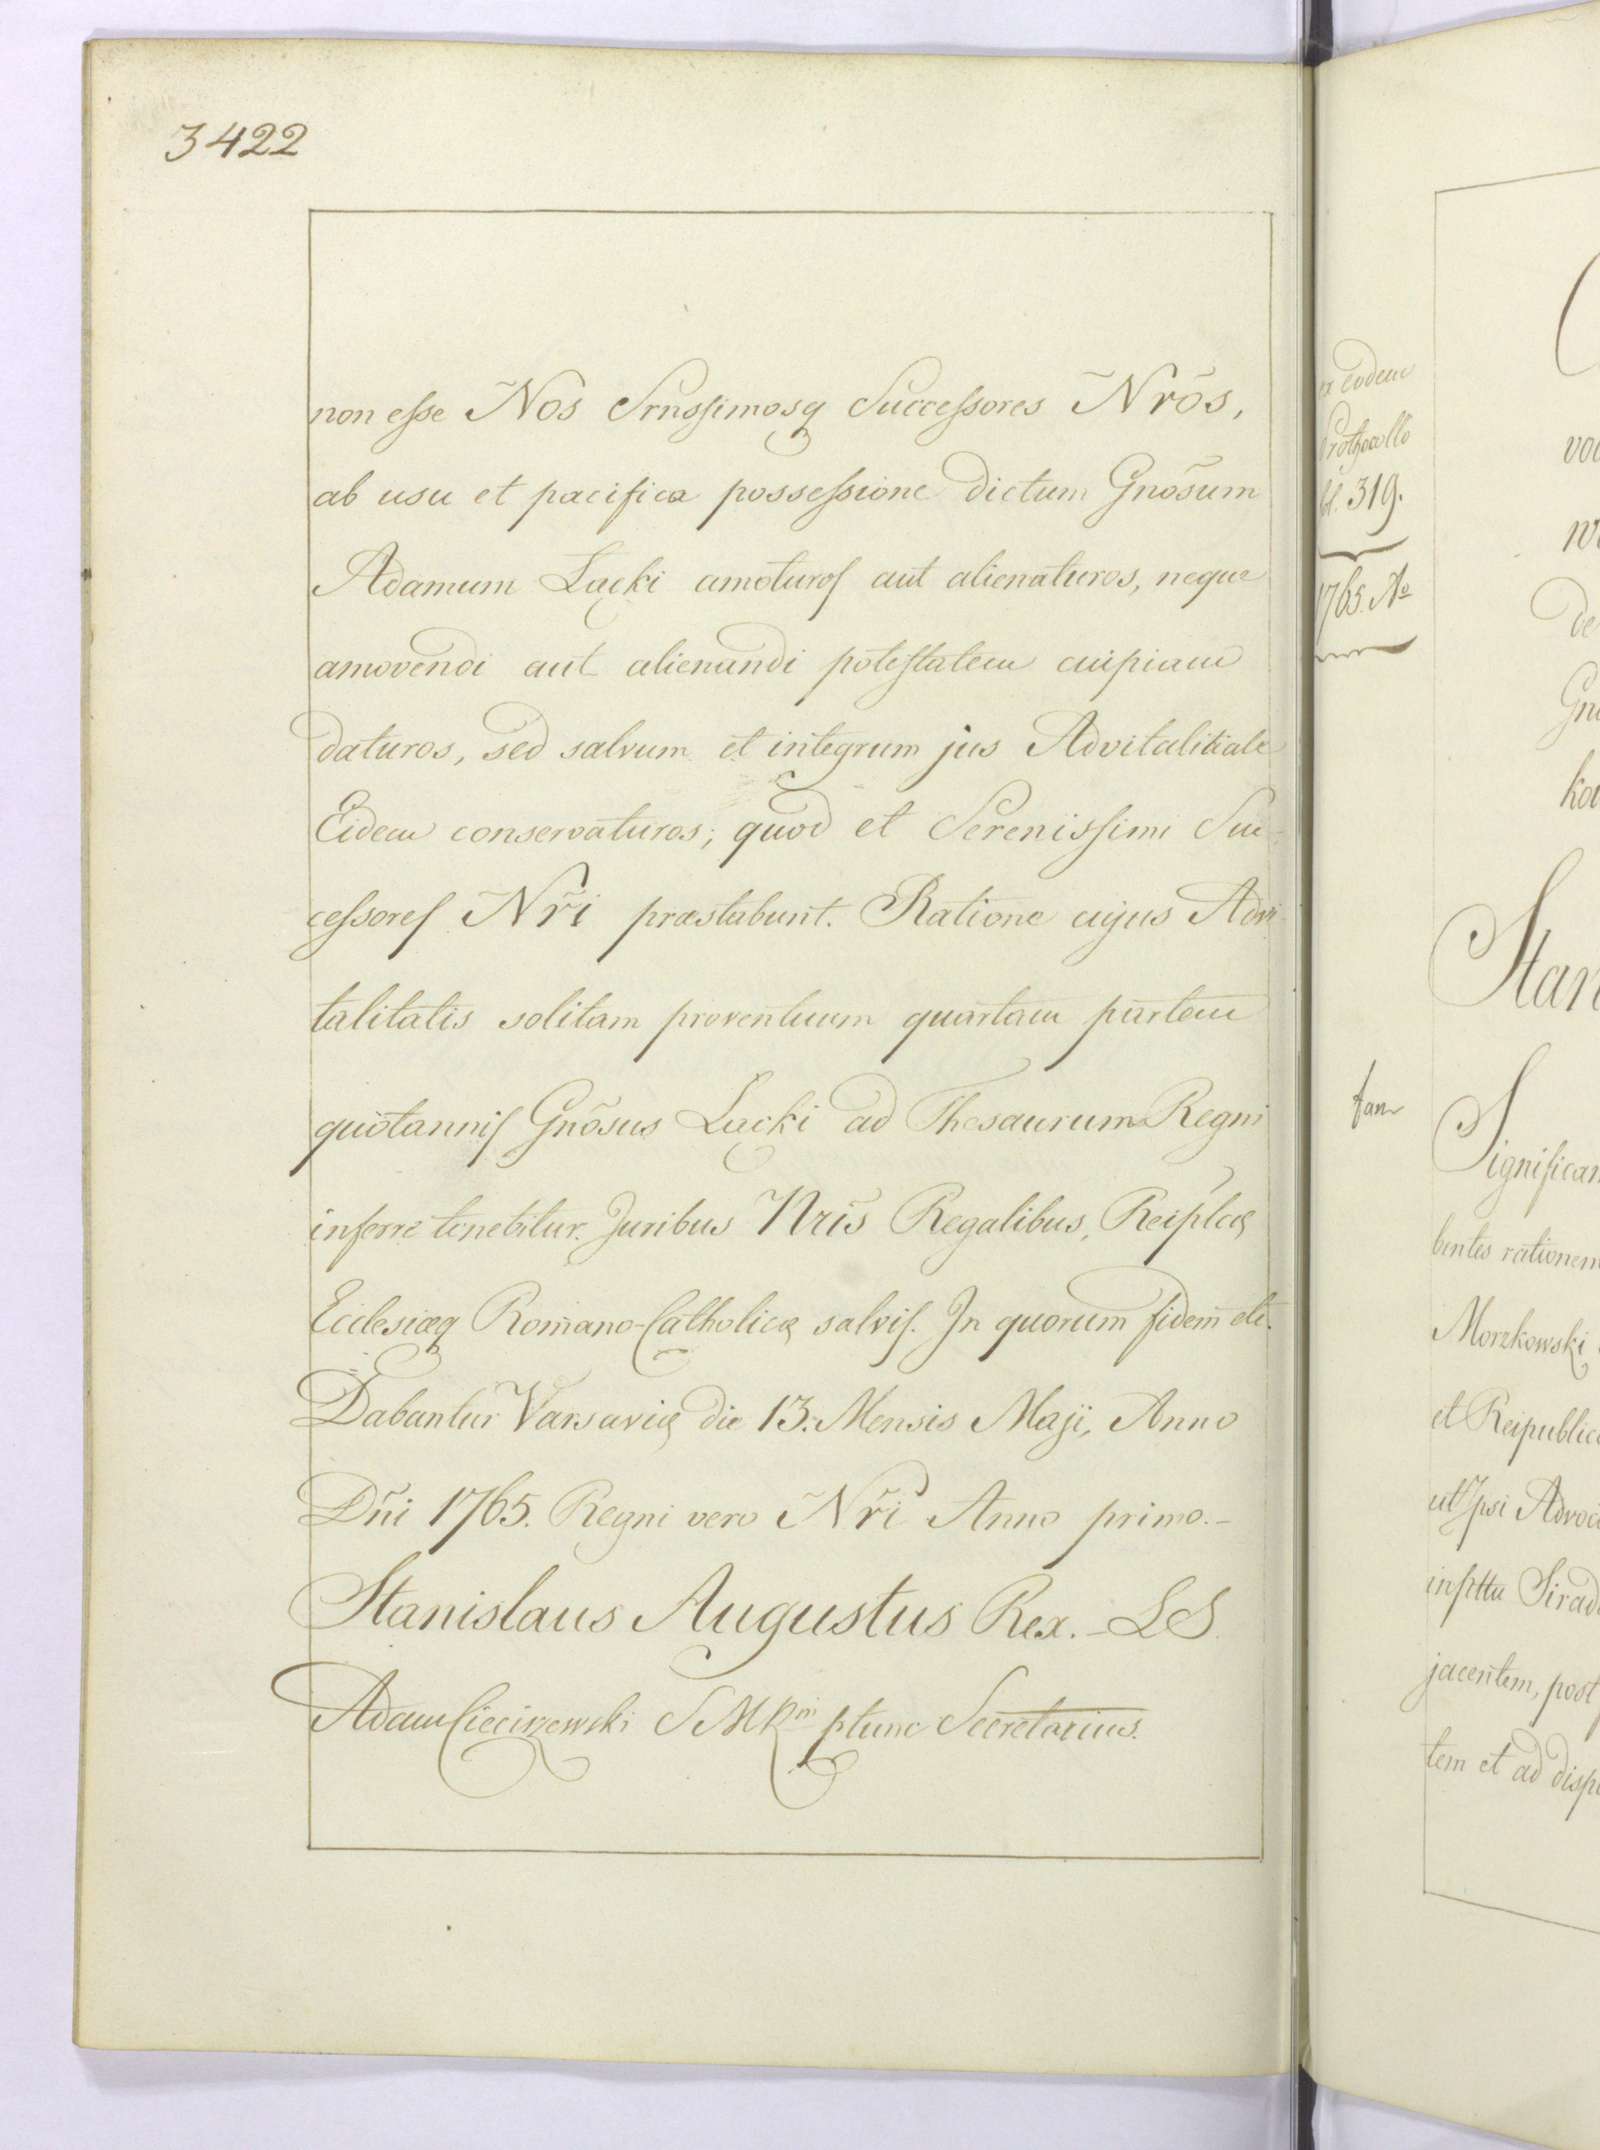 3422
non esse Nos Srnssimosq Successores Nrõs,
ab usu et pacifica possessione dictum Gnõsum
Adamum Lącki amoturos aut alienaturos, neque
amovendi aut alienandi potestatem cuipiam
daturos, sed salvum et integrum jus Advitalitiale
Eidem conservaturos; quod et Serenissimi Suc-
cessores Nr̃i præstabunt. Ratione cujus Advi
talitatis solitam proventuum quartam partem
quotannis Gnõsus Lącki ad Thesaurum Regni
inferre tenebitur. Juribus Nris Regalibus, Reiplcę
Ecclesiæq Romano-Catholicę salvis. In quorum fidem etc.
Dabantur Varsavię die 13. Mensis Maji, Anno
Dñi 1765. Regni vero Nr̃i Anno primo.-
Stanislaus Augustus Rex. - LS.
Adam Cieciszewski SMRm ptunc Secretarius.
ex eodem
Prothocollo
fol. 319.
1765. Ao
fam
Stan
Significam
bentes rationem
Morzkowski
et Reipublicę
ut Ipsi Advoca
in pttu Sirad
jacentem, post
tem et ad dispo